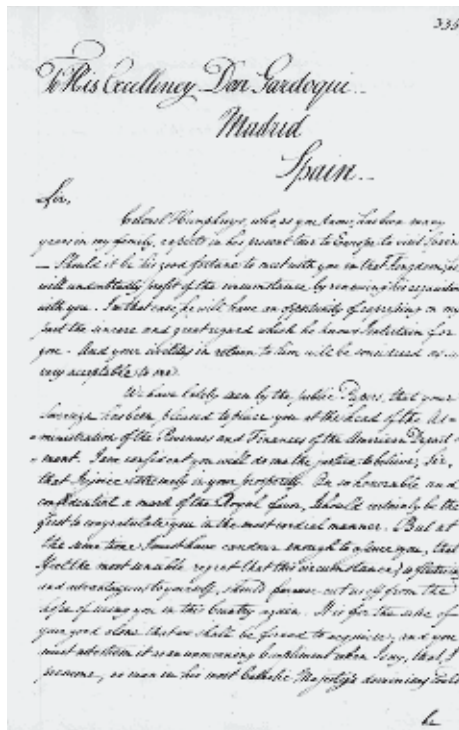 335
To His Excellency Don Gardoqui
Madrid
Spain
Sir,
Colonel Humphreys, who, as you know, has been many
years in my family, expects in his present tour to Europe to visit Spain
— Should it be his good fortune to meet with you in that Kingdom, he
will undoubtedly profit of the circumstance, by renewing his
with you. In that case, he will have an opportunity of expressing on my
part the sincere and great regard which he knows I entertain for
you. And your civilities in return to him will be considered as
very acceptable to me.
We have lately seen by the public Papers, that your
Sovereign has been pleased to place you at the head of the Ad-
ministration of the Revenues and Finances of the American Depart-
ment. I am confident you will do me the justice to believe, Sir,
that I rejoice extremely in your prosperity. On so honorable and
confidential a mark of the Royal favor, I should certainly be the
first to congratulate you in the most cordial manner. But at
the same time I must have candour enough to assure you, that
I feel the most sensible regret that this circumstance, so
and advantageous to yourself, should cut us off from the
hope of seeing you in this Country again. It is for the sake of
your good alone that we shall be forced to acquiesce; and you
must not esteem it an unmeaning compliment when I say, that I
presume, no man in his most Catholic Majesty's dominions could
be